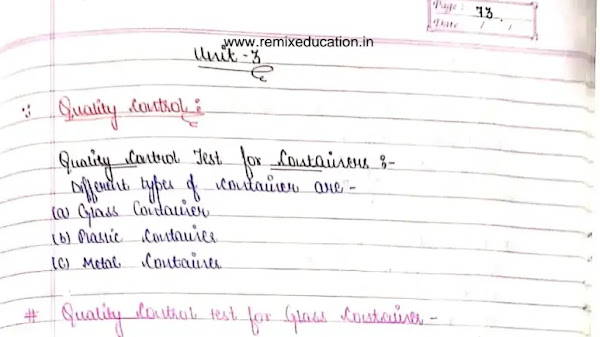 Page: 73
Date
www.remixeducation.in
Unit - 3
Quality Control :
Quality Control Test for Containers :-
Different types of container are -
(a) Glass Container
(b) Plastic Container
(c) Metal Container
# Quality Control test for Glass Container -